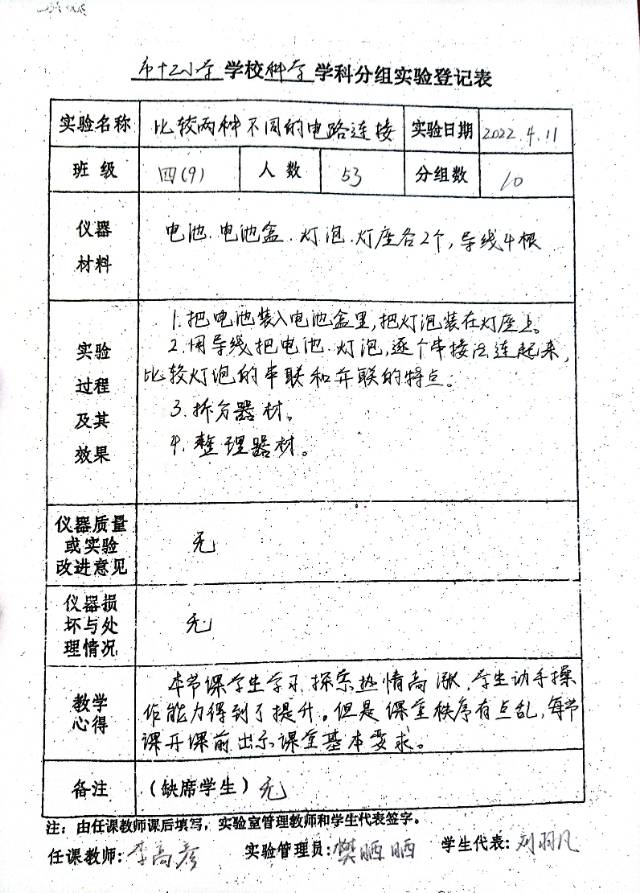 市十二小学 学校 科学 学科分组实验登记表
实验名称 比较两种不同的电路连接 实验日期 2022.4.11
班 级 四(9) 人 数 53 分组数 10
仪器
材料
电池.电池盒.灯泡.灯座各2个,导线4根
实验
过程
及其
效果
1.把电池装入电池盒里,把灯泡装在灯座上。
2.用导线把电池.灯泡,逐个串接法连起来,
比较灯泡的串联和并联的特点。
3.拆分器材。
4.整理器材。
仪器质量
或实验
改进意见
无
仪器损
坏与处
理情况
无
教学
心得
本节课学生学习探索热情高涨,学生动手操
作能力得到了提升。但是课堂秩序有点乱,每节
课开课前出示课堂基本要求。
备注 (缺席学生) 无
注:由任课教师课后填写,实验室管理教师和学生代表签字。
任课教师: 李高彦 实验管理员: 樊晒晒 学生代表: 刘羽凡